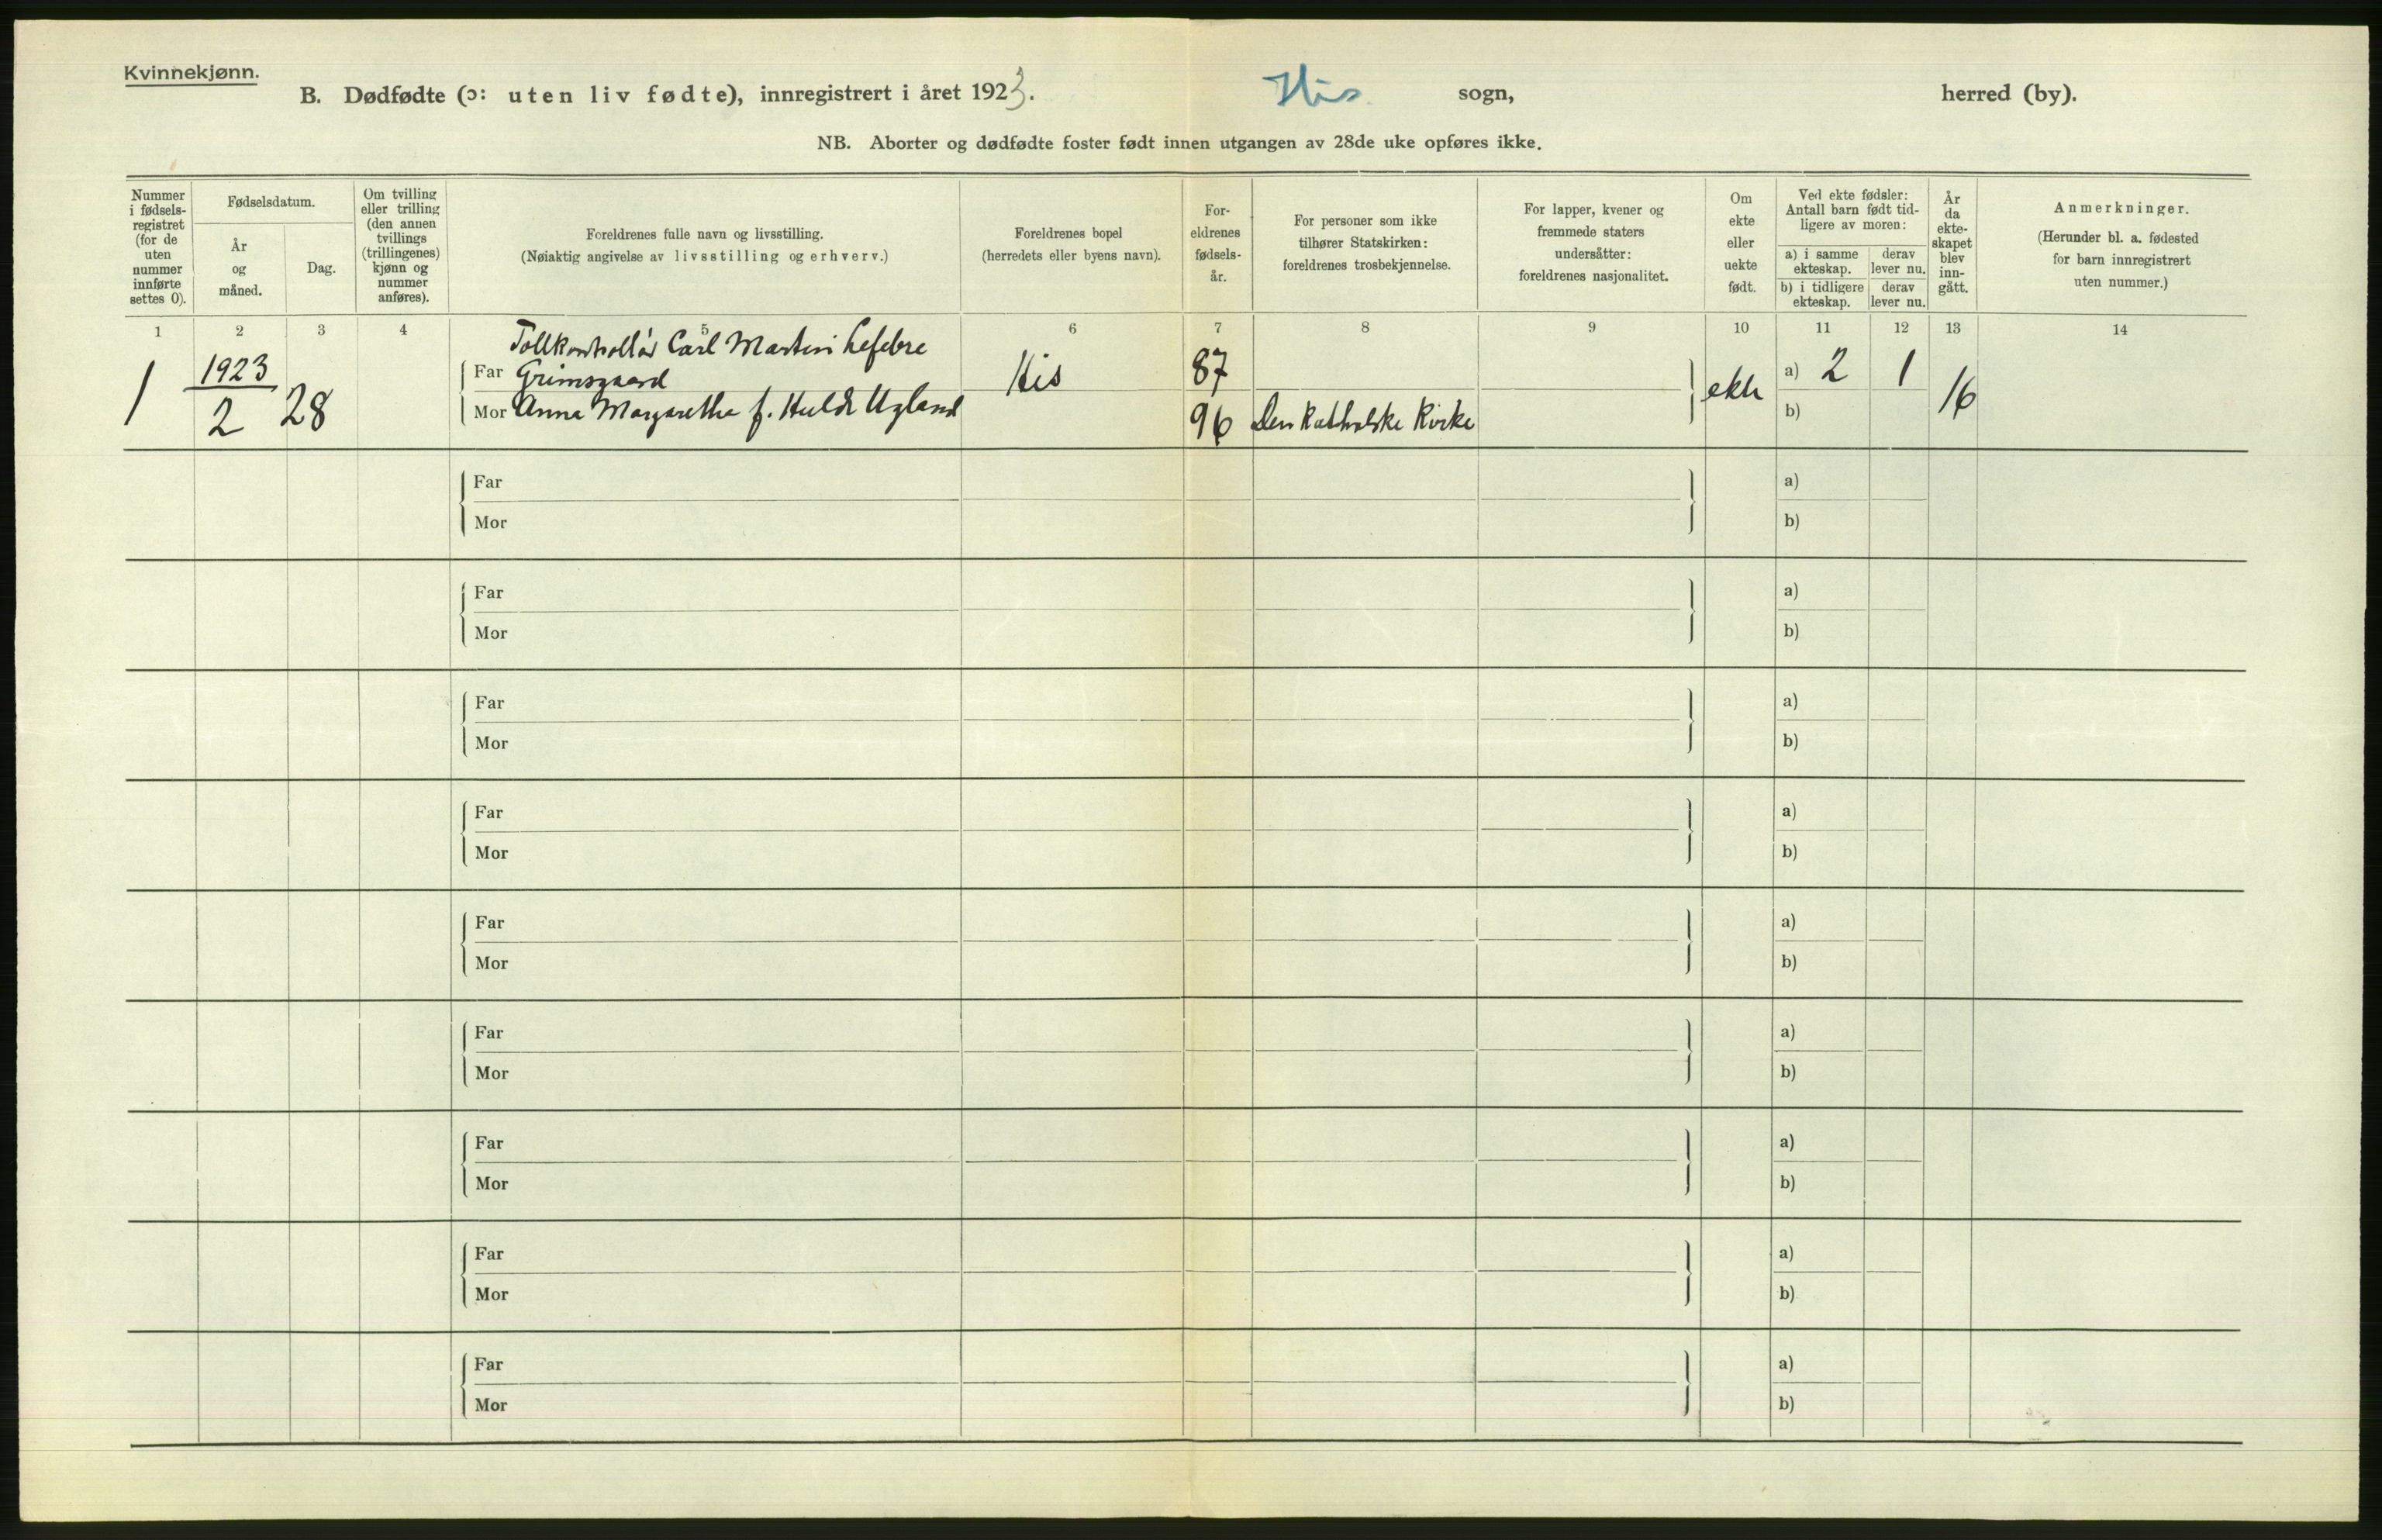 Kvinnekjønn.
B. Dødfødte (ɔ: uten liv fødte), innregistrert i året 1923. His sogn, herred (by).
NB. Aborter og dødfødte foster født innen utgangen av 28de uke opføres ikke.
Nummer i fødsels-registret (for de uten nummer innførte settes 0).
Fødselsdatum.
År og måned.
Dag.
Om tvilling eller trilling (den annen tvillings (trillingenes) kjønn og nummer anføres).
Foreldrenes fulle navn og livsstilling.
(Nøiaktig angivelse av livsstilling og erhverv.)
Foreldrenes bopel
(herredets eller byens navn).
For-eldrenes fødsels-år.
For personer som ikke tilhører Statskirken: foreldrenes trosbekjennelse.
For lapper, kvener og fremmede staters undersåtter: foreldrenes nasjonalitet.
Om ekte eller uekte født.
Ved ekte fødsler: Antall barn født tid-ligere av moren:
a) i samme ekteskap.
derav lever nu.
b) i tidligere ekteskap.
derav lever nu.
År da ekte-skapet blev inn-gått.
Anmerkninger.
(Herunder bl. a. fødested for barn innregistrert uten nummer.)
1 2 3 4 5 6 7 8 9 10 11 12 13 14
Tollkontrollør Carl Martin Lefebre
1 1923 2 28 Far Grimsgaard His 87 ekte a) 2 1 16
Mor Anna Margaretha f. Huldt Ugland 96 Den Katholske Kirke b)
Far a)
Mor b)
Far a)
Mor b)
Far a)
Mor b)
Far a)
Mor b)
Far a)
Mor b)
Far a)
Mor b)
Far a)
Mor b)
Far a)
Mor b)
Far a)
Mor b)